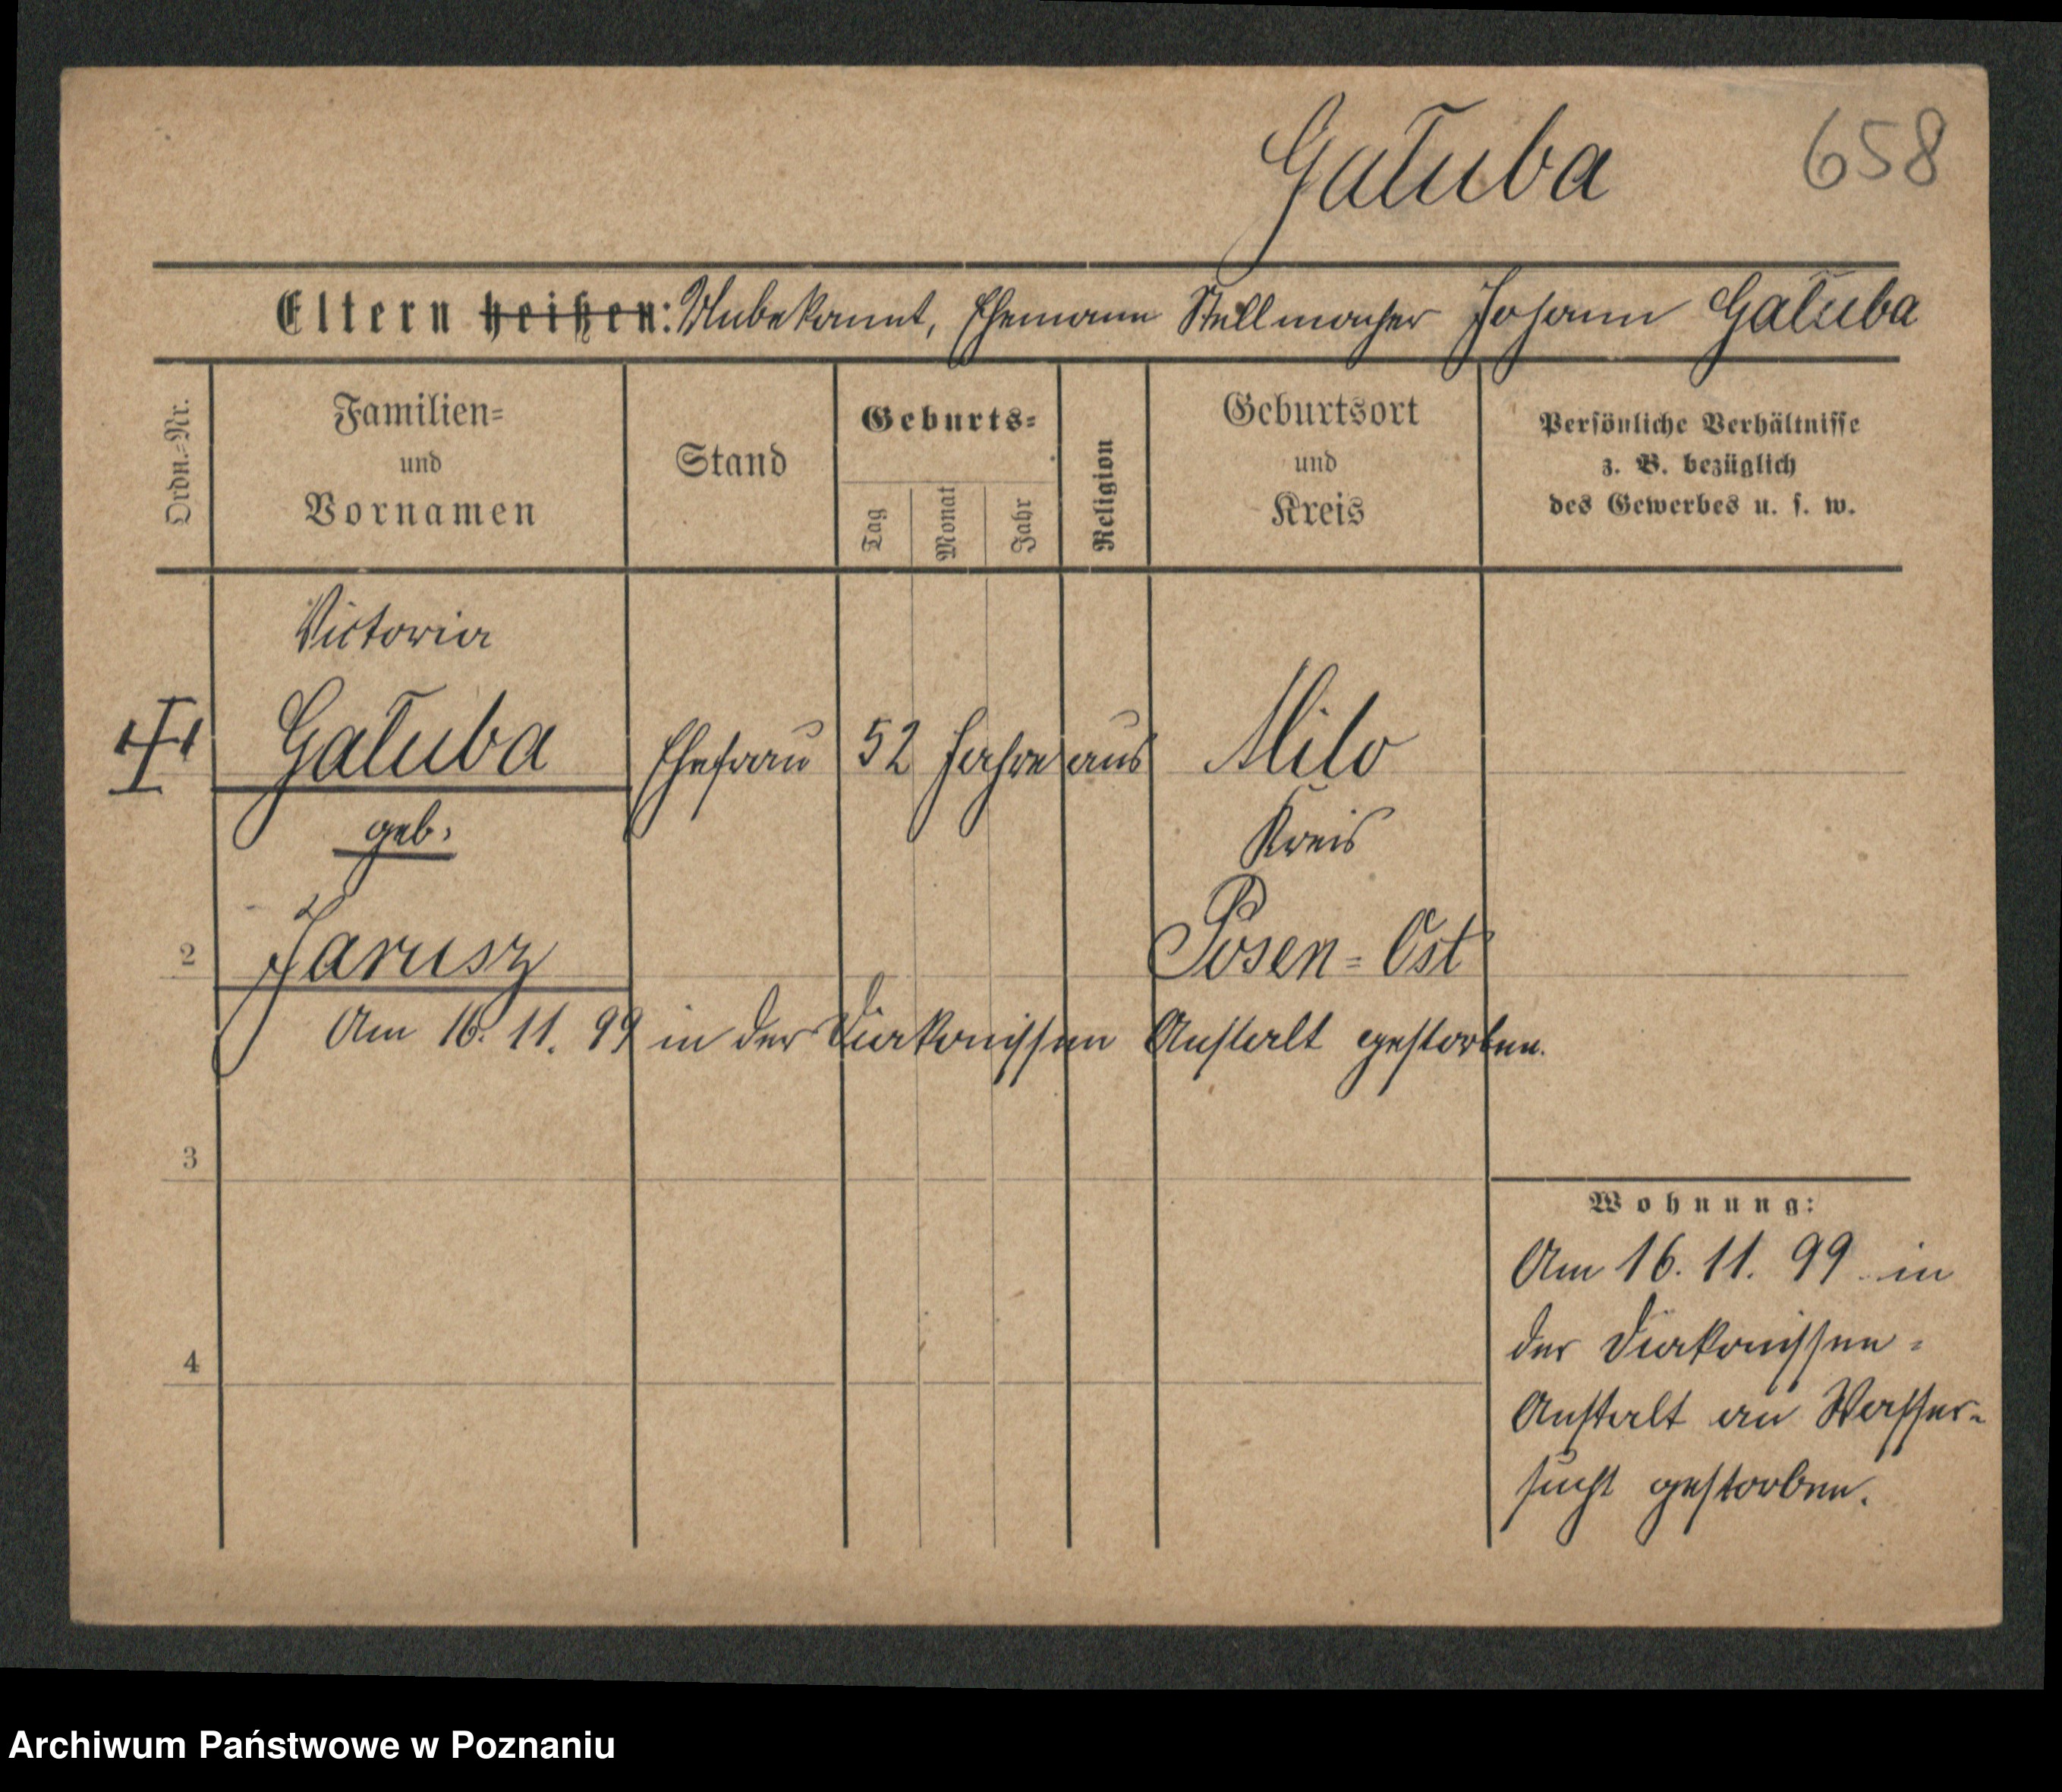 Gałuba 658
Eltern heißen: Unbekannt, Ehemann Stellmacher Johann Gałuba
Ordn.-Nr.
Familien-
und
Vornamen
Stand
Geburts-
Tag
Monat
Jahr
Religion
Geburtsort
und
Kreis
Persönliche Verhältnisse
z. B. bezüglich
des Gewerbes u. s. w.
Victoria
Gałuba Ehefrau 52 Jahre aus Milo
geb. Kreis
2 Jarusz Posen-Ost
Am 16. 11. 99 in der Diakonissen Anstalt gestorben.
3
Wohnung:
Am 16. 11. 99 in
der Diakonissen-
4
Anstalt an Wasser-
sucht gestorben.
Archiwum Państwowe w Poznaniu